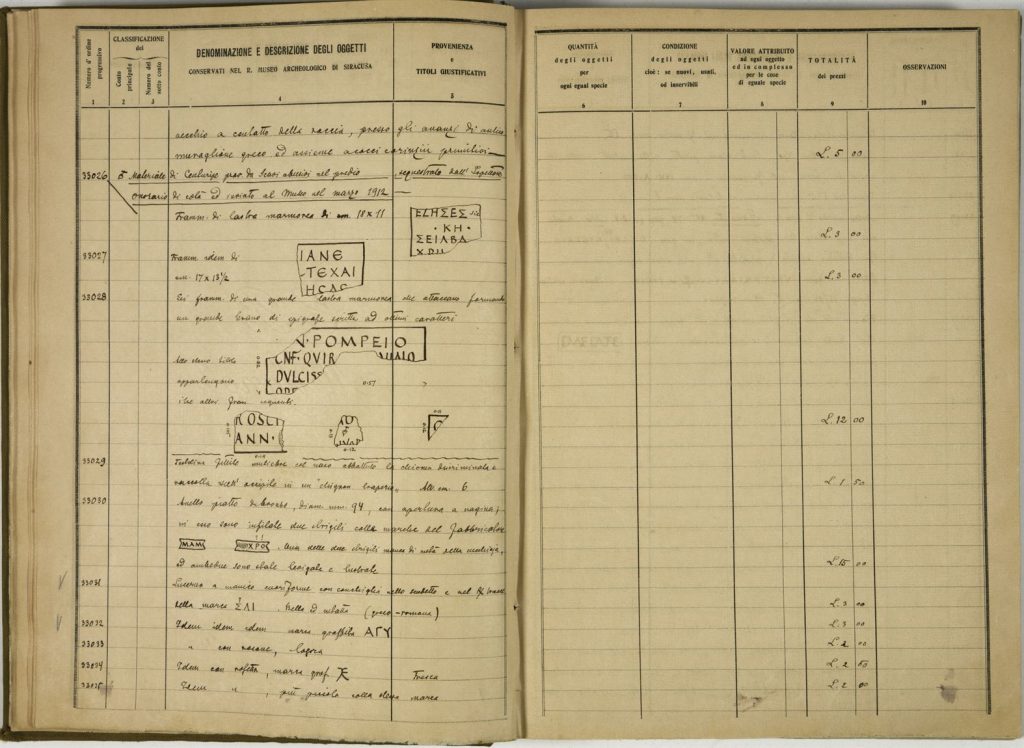 Numero d'ordine progressivo
CLASSIFICAZIONE dei
Conto principale
Numero del sotto conto
DENOMINAZIONE E DESCRIZIONE DEGLI OGGETTI
CONSERVATI NEL R. MUSEO ARCHEOLOGICO DI SIRACUSA
PROVENIENZA
e
TITOLI GIUSTIFICATIVI
1 2 3 4 5
a contatto della roccia, presso gli avanzi di antico
muraglione greco ed assieme a cocci corinzii primitivi
33026 Materiale di Centuripe prov. da Scavi abusivi nel predio sequestrato dall'Ispettore
onorario di colà ed inviato al Museo nel marzo 1912
Framm. di lastra marmorea di cm. 18 x 11
ΕΩΗΣΕΣ sic
· ΚΗ ·
ΣΕΙΛΒΑ
33027 Framm. idem di
cm. 17 x 13½
ΙΑΝΕ
ΤΕΧΑΙ
33028 Sei framm. di una grande lastra marmorea che attaccano formando
un grande brano di epigrafe scritta ad ottimi caratteri
N·POMPEIO
CNF·QVIR
DVLCISS
Allo stesso titolo
appartengono
0.57
i tre altri framm. seguenti.
ROSCI
ANN·
33029 Testolina fittile muliebre col naso
raccolta in un "chignon" Alt. cm. 6
33030 Anello piatto di bronzo, diam. mm. 94, con apertura a
vi sono infilate due strigili colla marche del fabbricatore
MAM ΧΡΟ . Una delle due strigili manca di metà della
ed ambedue sono
33031 Lucerna a manico cuoriforme con conchiglia nello scudetto e nel
della marca ΣΛΙ . Bella ed intatta (greco-romana)
33032 Idem idem idem marca graffita ΑΓΥ
33033 " con rosone, logora
33034 Idem con rosetta, marca graf. Fresca
33035 Idem " , più piccola colla stessa marca
QUANTITÀ
degli oggetti
per
ogni egual specie
CONDIZIONE
degli oggetti
cioè: se nuovi, usati,
od inservibili
VALORE ATTRIBUITO
ad ogni oggetto
ed in complesso
per le cose
di eguale specie
TOTALITÀ
dei prezzi
OSSERVAZIONI
6 7 8 9 10
L. 5 00
L. 3 00
L. 3 00
L. 12 00
L. 1 50
L. 15 00
L. 3 00
L. 3 00
L. 2 00
L. 2 50
L. 2 00